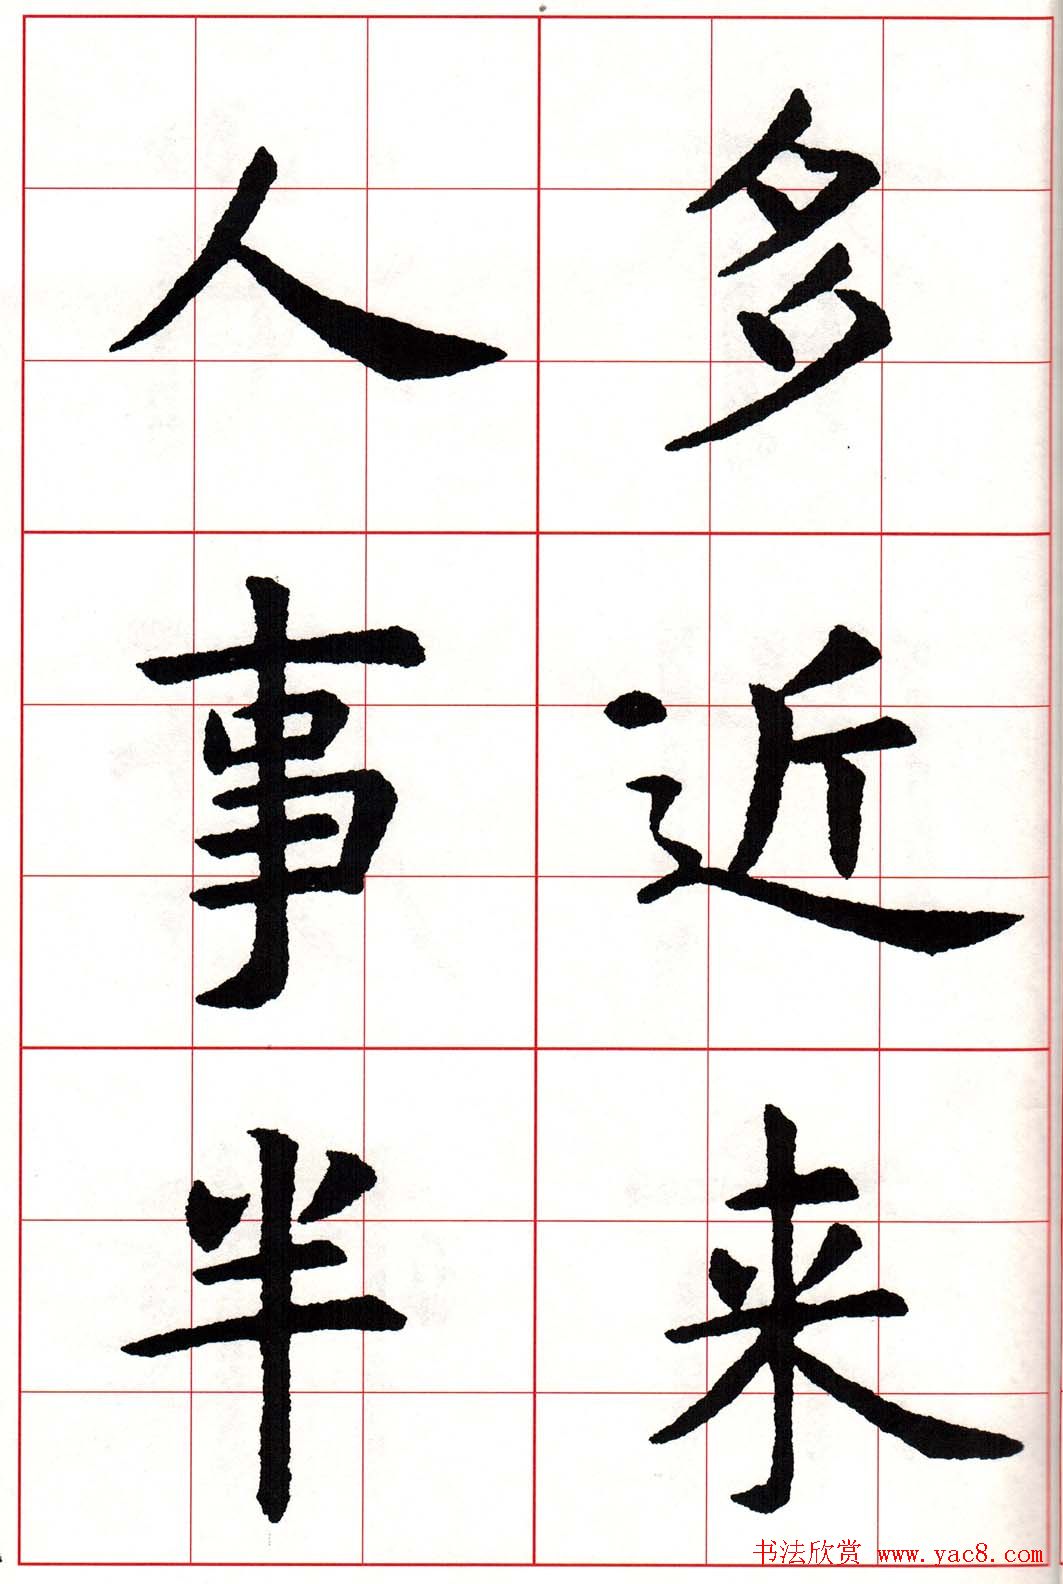 多近来
人事半
书法欣赏 www.yac8.com